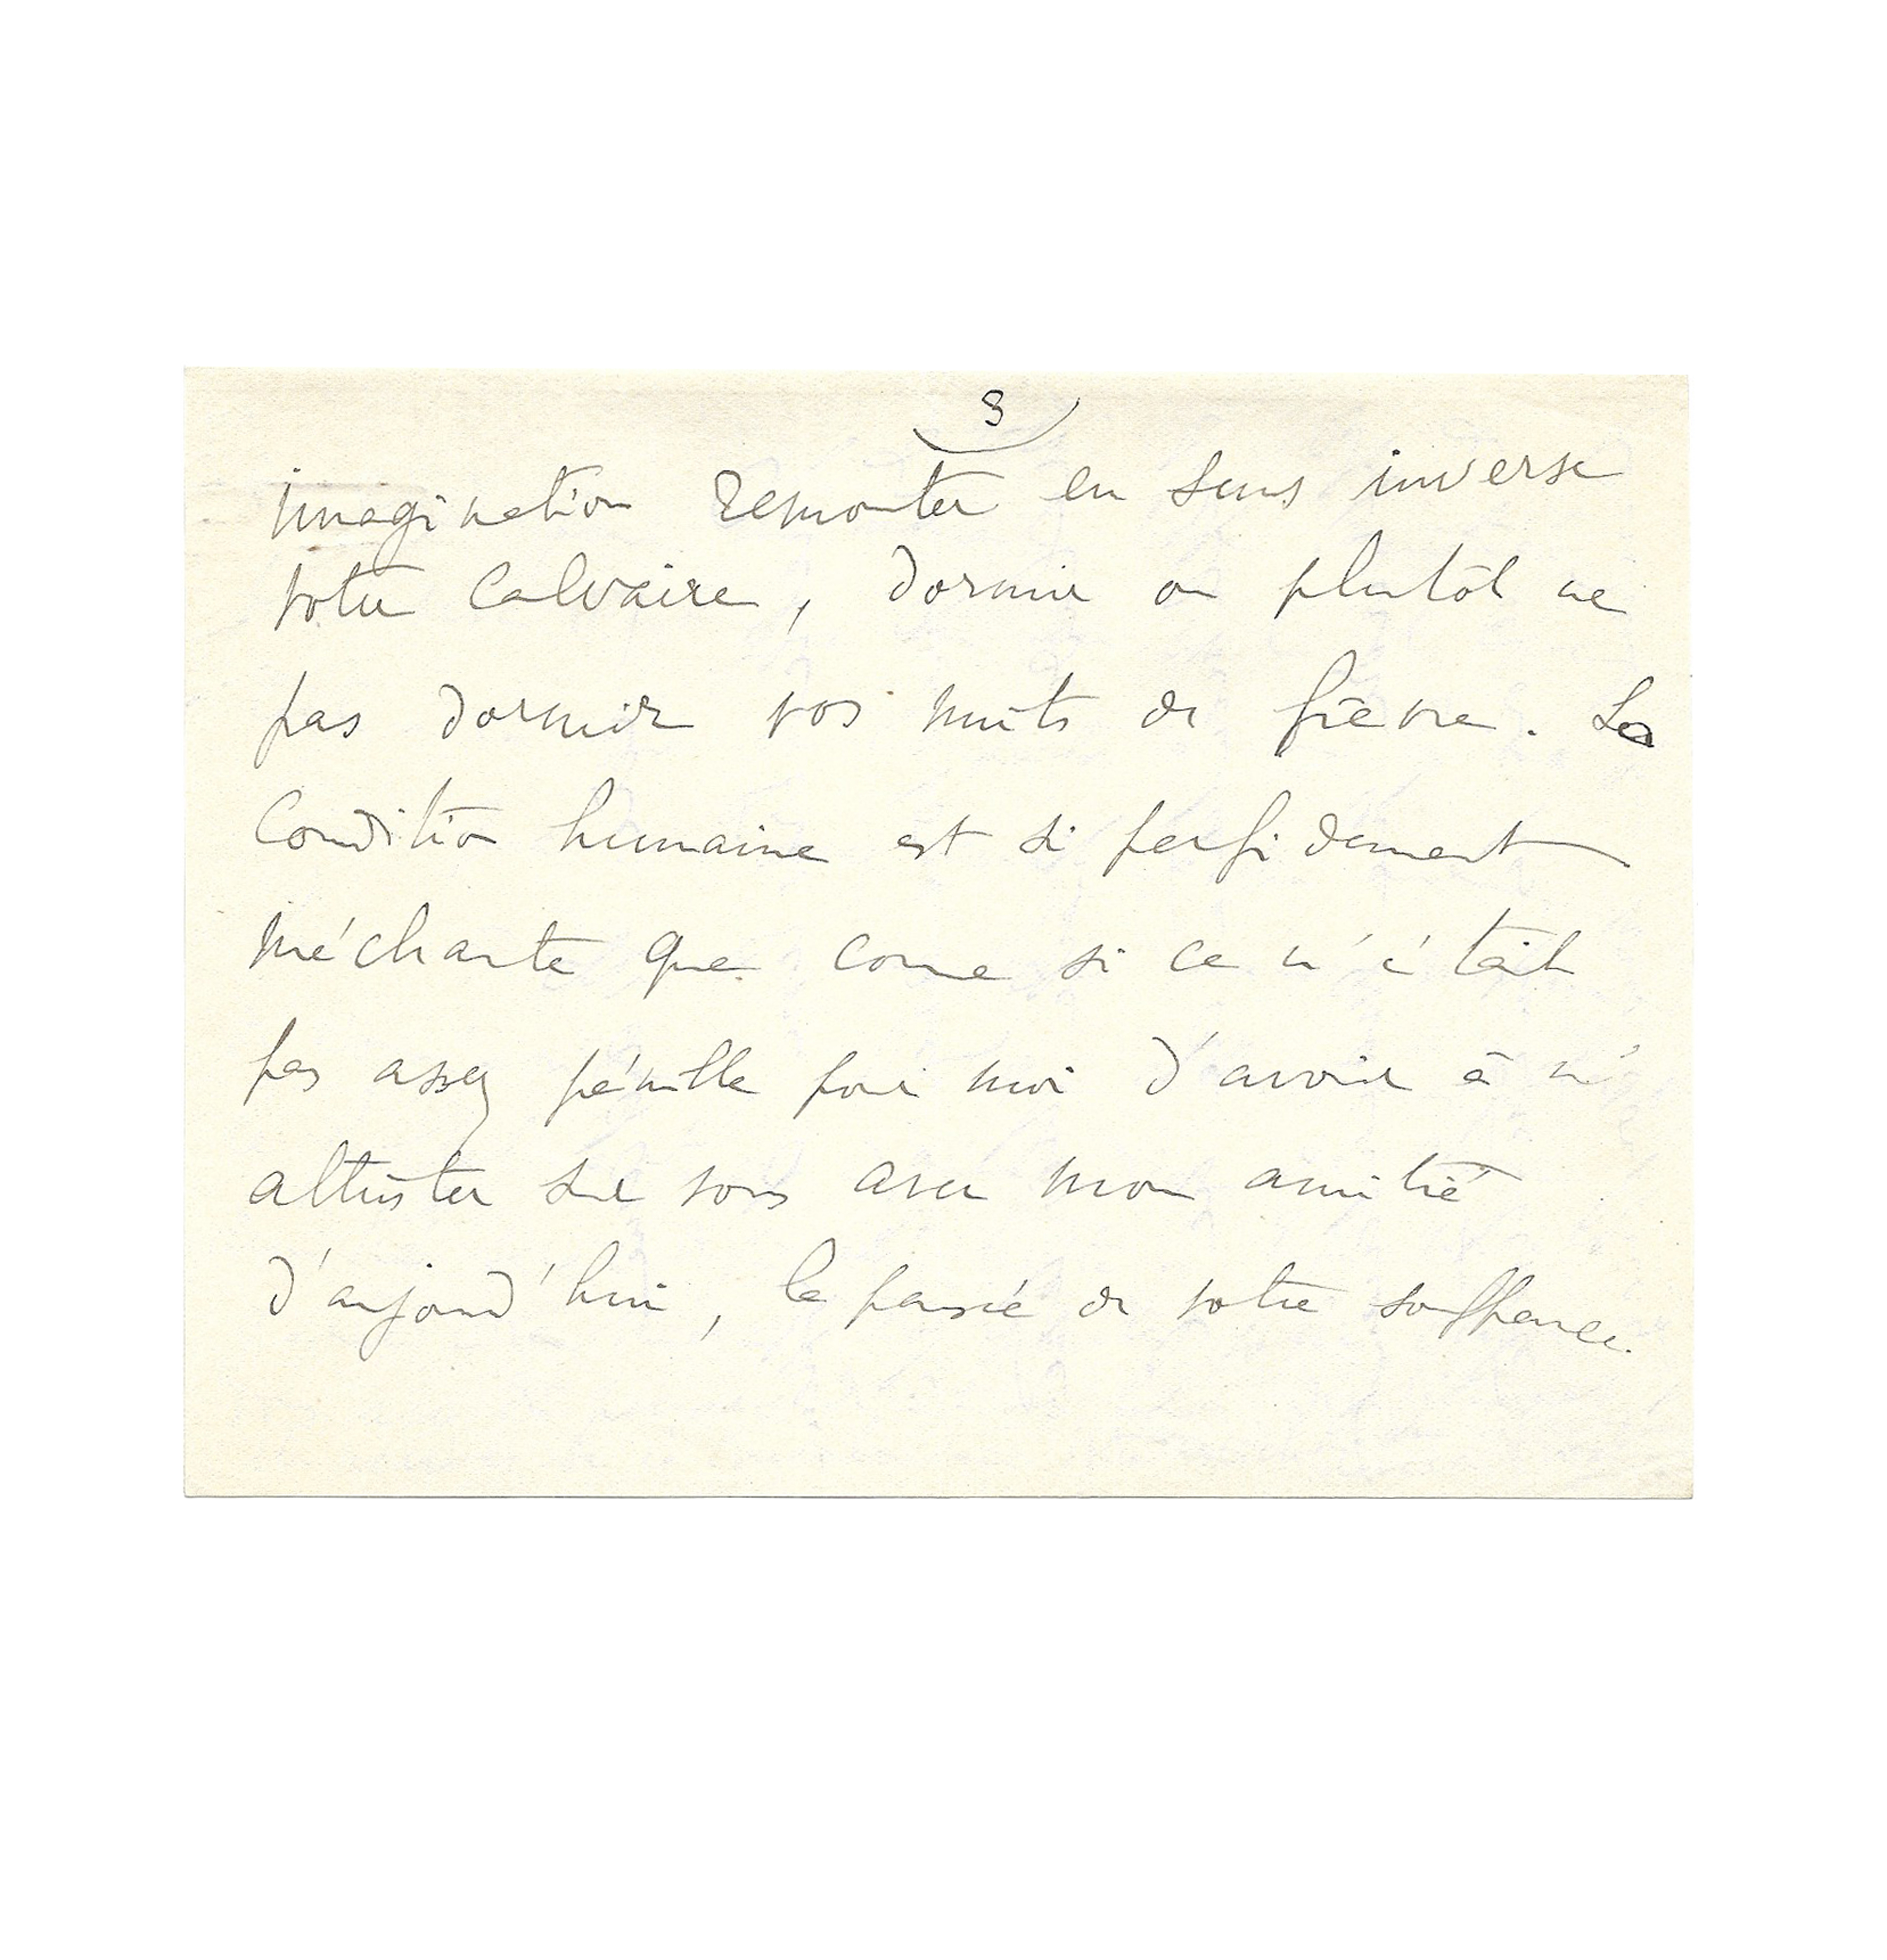 3
imagination remonter en sens inverse
votre Calvaire, dormir ou plutôt ne
pas dormir vos nuits de fièvre. La
Condition humaine est si perfidement
méchante que come si ce n'était
pas assez pénible pour moi d'avoir à m'
attrister sur vous avec mon amitié
d'aujourd'hui, la pensée de votre souffrance.